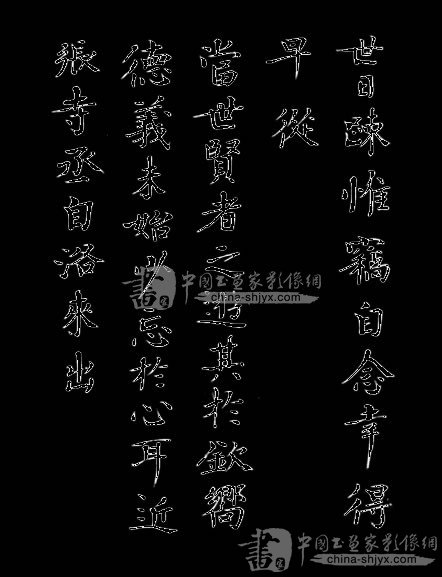 世日踈惟竊自念幸得
早從
當世賢者之遊其於欽嚮
德義未始少忘於心耳近
張寺丞自洛來出
中國书画家影像網
china-shjyx.com
中國书画家影像網
china-shjyx.com